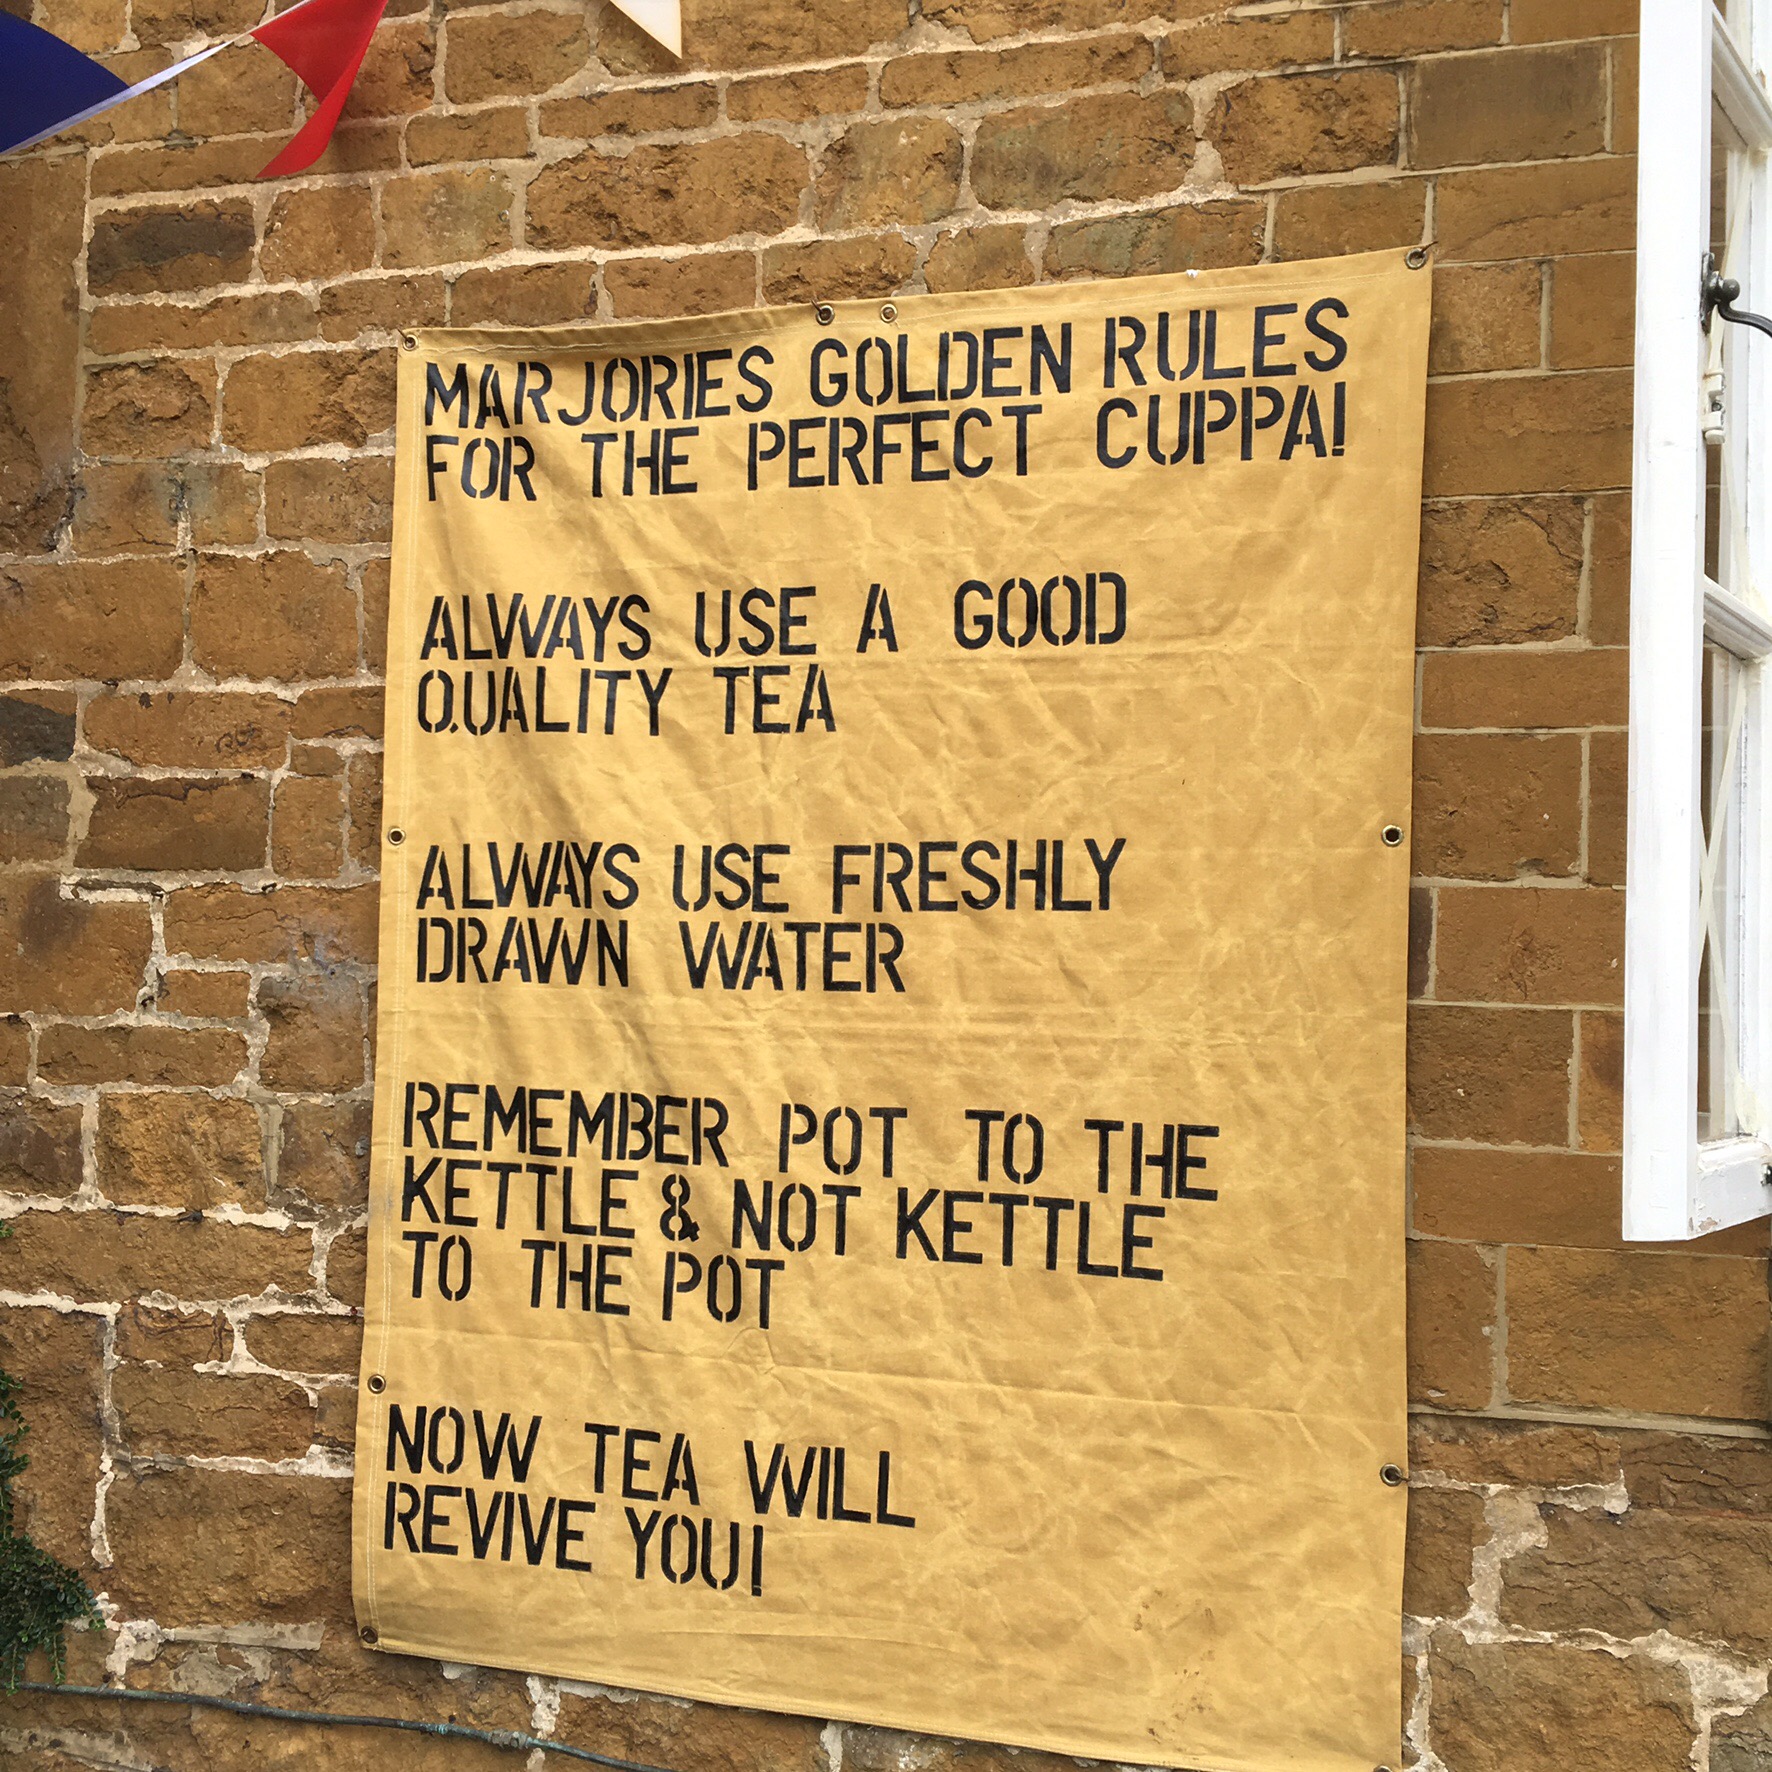 MARJORIES GOLDEN RULES
FOR THE PERFECT CUPPA!
ALWAYS USE A GOOD
QUALITY TEA
ALWAYS USE FRESHLY
DRAWN WATER
REMEMBER POT TO THE
KETTLE & NOT KETTLE
TO THE POT
NOW TEA WILL
REVIVE YOU!